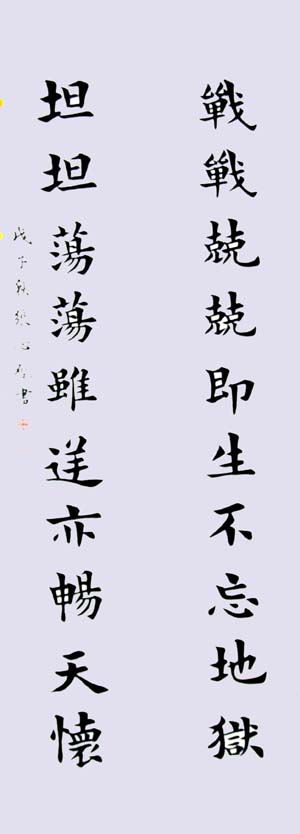 戰戰兢兢即生不忘地獄
坦坦蕩蕩雖逆亦暢天懷
戊子秋張書